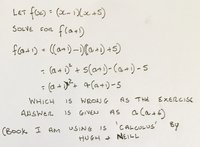 LET f(x) = (x-1)(x+5)
SOLVE FOR f(a+1)
f(a+1) = ((a+1)-1)((a+1)+5)
= (a+1)² + 5(a+1)-(a+1)-5
= (a+1)² + 4(a+1)-5
WHICH IS WRONG AS THE EXERCISE
ANSWER IS GIVEN AS a(a+6)
(BOOK I AM USING IS 'CALCULUS' BY
HUGH + NEILL